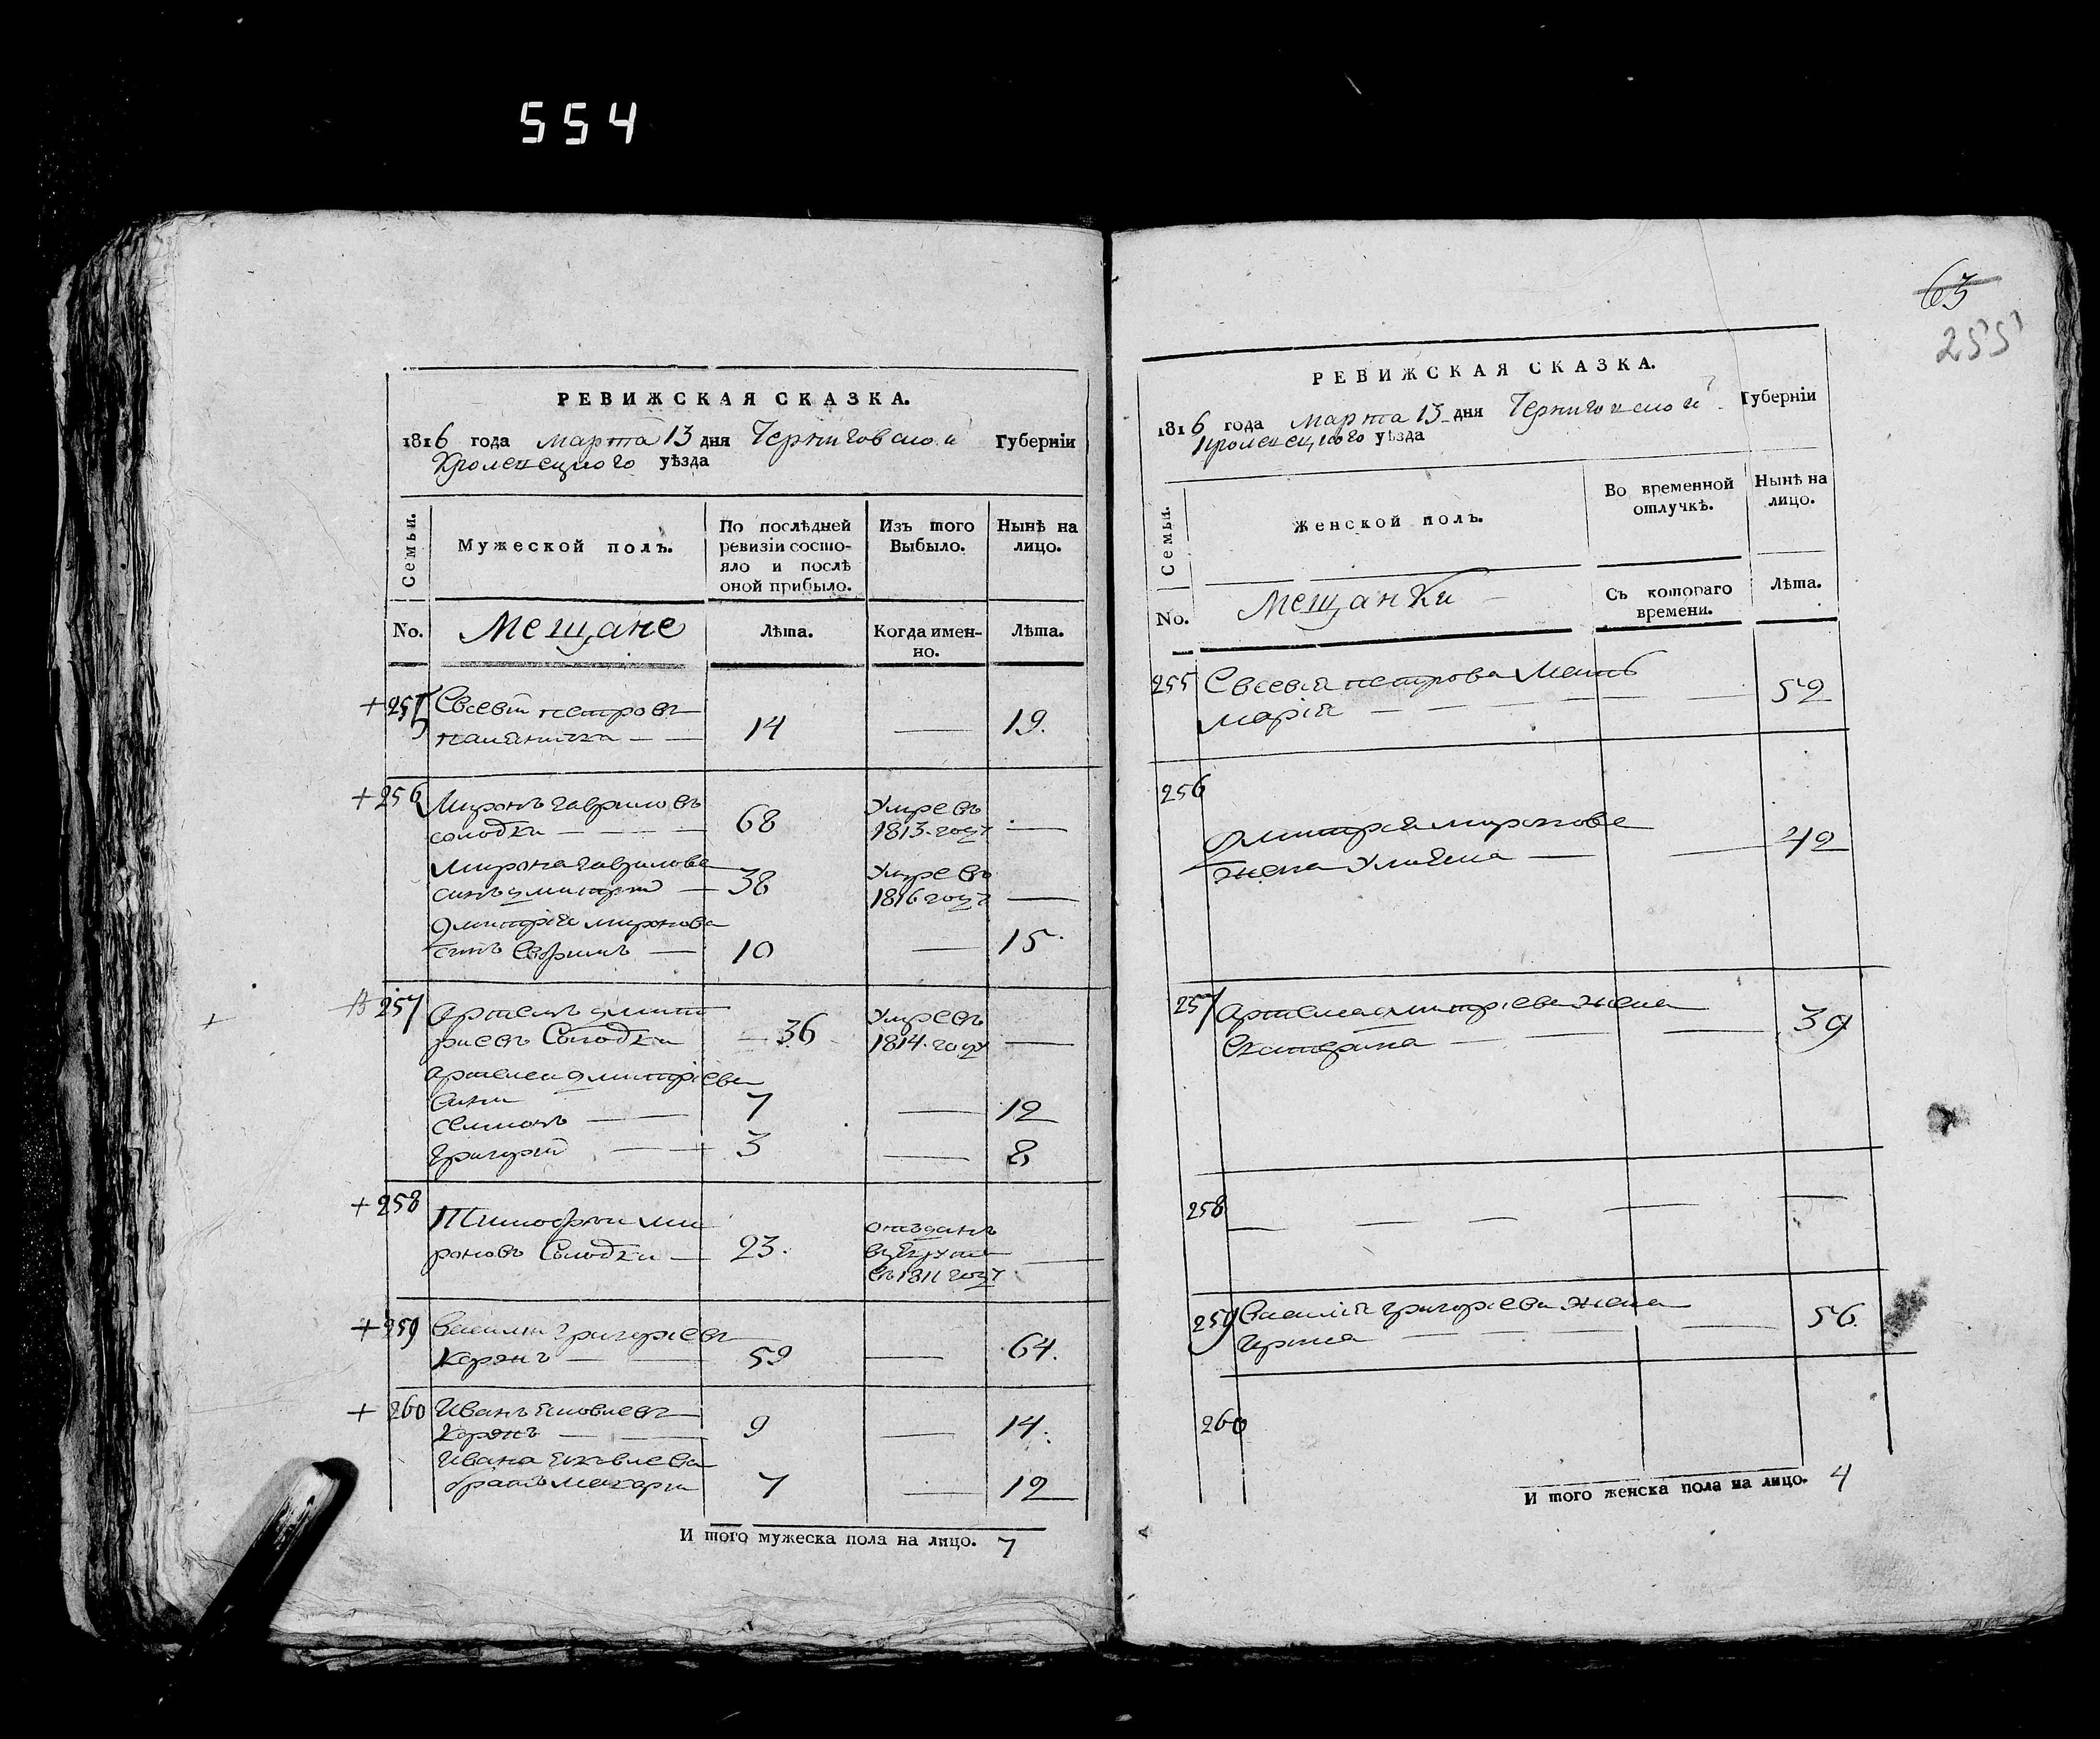 554
РЕВИЖСКАЯ СКАЗКА.
1816 года марта 13 дня Черниговской Губерніи
Кролевецкого уѣзда
Семьи.
Мужеской полъ.
По послѣдней ревизіи состо-
яло и послѣ
оной прибыло.
Изъ того
Выбыло.
Нынѣ на
лицо.
No.
Мещане
Лѣта.
Когда имен-
но.
Лѣта.
+ 255 Евсевій петровъ
14 — 19.
+ 256 Миронъ гавриловъ
солодки — 68 Умре въ 1813. году —
Мирона гаврилова
синъ дмитрій — 38 Умре въ 1816 году —
Дмитрія миронова
синъ Евфимъ — 10 — 15.
257 Артемъ дмит
риевъ Солодки 36 Умре въ 1814. году —
Артема дмитріева
сини
семионъ — 7 — 12
григорій — 3 — 8
+ 258 Тимофей ми
роновъ Солодки — 23. отдан в рекруты въ 1811 году —
+ 259 Василій григориевъ
Корэнъ — 59 — 64.
+ 260 Иванъ яковлевъ
Корэнъ — 9 — 14.
Ивана яковлева
братъ макарій 7 — 12
И того мужеска пола на лицо. 7
63
255
РЕВИЖСКАЯ СКАЗКА.
1816 года марта 13 дня Черниговской Губерніи
Кролевецкого уѣзда
Семьи.
Женской полъ.
Во временной
отлучкѣ.
Нынѣ на
лицо.
No.
Мещанки
Съ котораго
времени.
Лѣта.
255 Евсевія петрова Мать
марія — 52
256
Дмитрія миронова
жена Улияна — 42
257 Артема дмитріева жена
Екатерина — 39
258 — — — — —
259 Василія григориева жена
Ирина — 56.
260
И того женска пола на лицо. 4